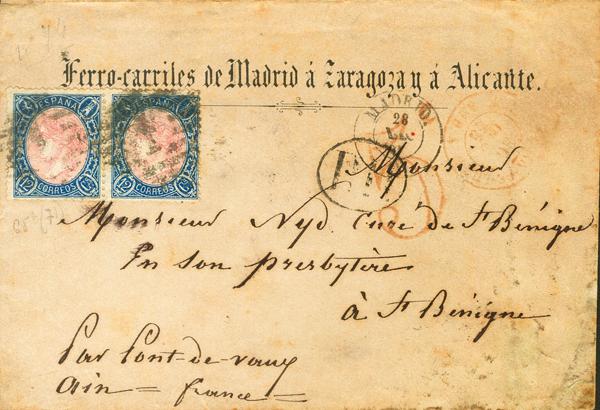 Ferro-carriles de Madrid á Zaragoza y á Alicante.
ESPAÑA
ESPAÑA
12 CORREOS Cs
12 CORREOS Cs
MADRID
26
Monsieur
Monsieur Nyd. Curé de St Bénigne
En son presbytère
à St Bénigne
Par Pont-de-vaux
Ain = france =